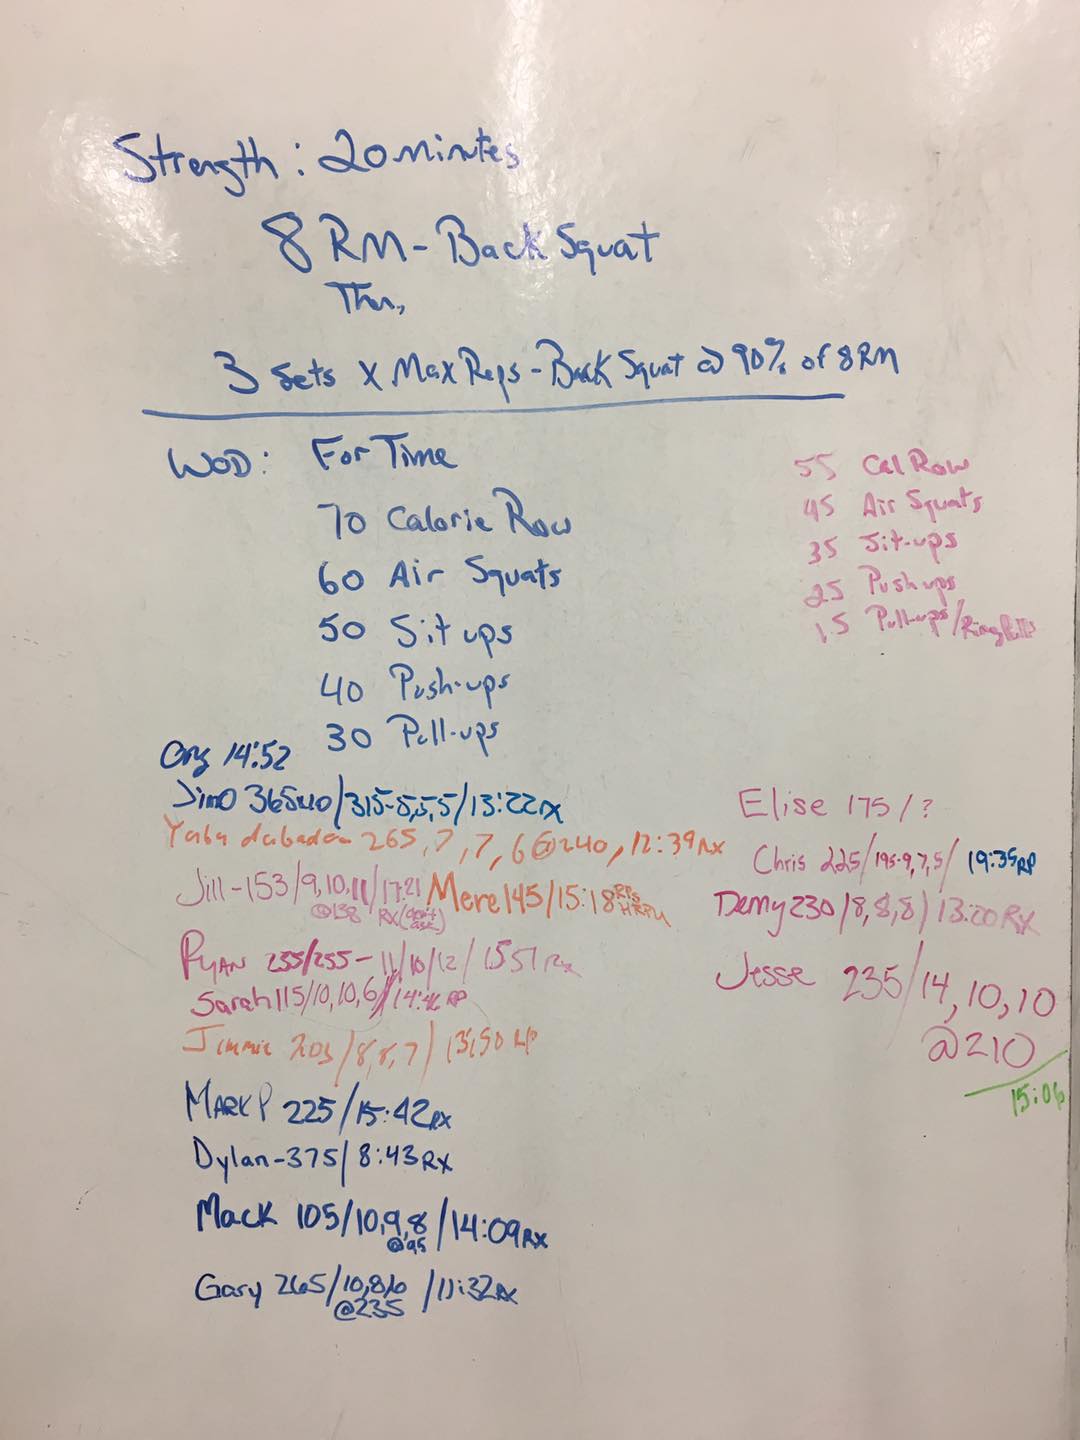 Strength: 20 minutes
8 RM - Back Squat
Then,
3 sets x Max Reps - Back Squat @ 90% of 8RM
WOD: For Time
70 Calorie Row
60 Air Squats
50 Sit ups
40 Push-ups
30 Pull-ups
55 Cal Row
45 Air Squats
35 Sit-ups
25 Push ups
15 Pull-ups/Ring
14:52
JimO 365 /315-5,5,5/13:22 RX
265, 7, 7, 6 @240, 12:39 RX
Jill - 153/9,10,11/17:21
@138 RX (don't ask)
Mere 145/15:18
Ryan 255/255 - 11/10/12/ 1551 RX
Sarah 115/10,10,6/14:46 RP
Jimmie 203/8,8,7/
Mark P 225/15:42 RX
Dylan - 375/ 8:43 RX
Mack 105/10,9,8/14:09 RX
@95
Gary 265/10,8,6 /11:32 RX
@235
Elise 175/?
Chris 225/195-9,7,5/ 19:35 RP
Demy 230/8,8,8/13:20 RX
Jesse 235/14,10,10
@210
15:06